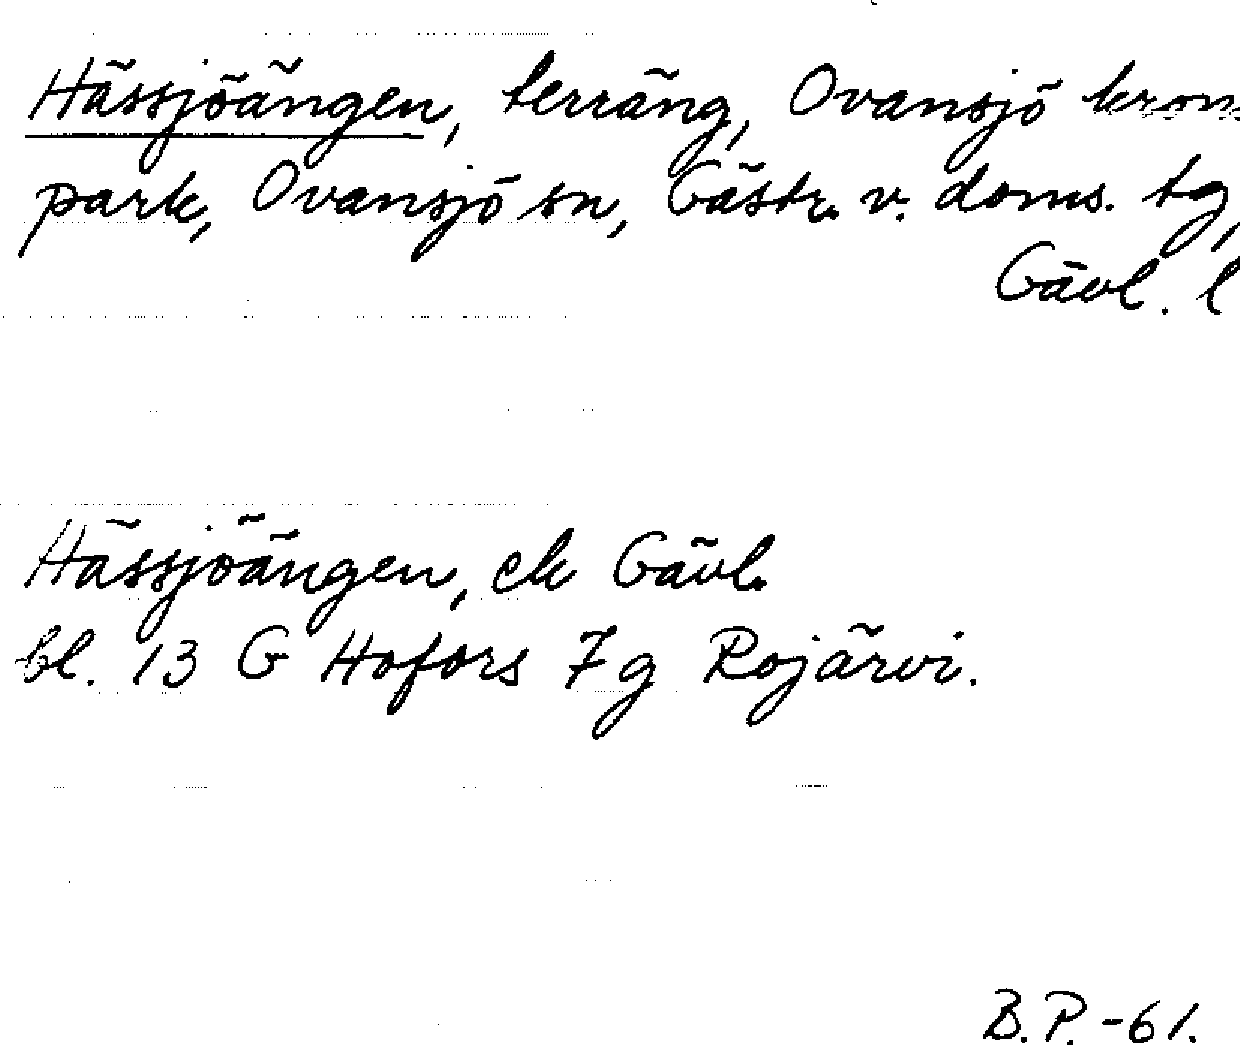 Hässjöängen, terräng, Ovansjö krons
park, Ovansjö sn, Gästr. v. doms. tg,
Gävl. l
Hässjöängen, ek Gävl.
bl. 13 G Hofors 7g Rojärvi.
B.P.-61.